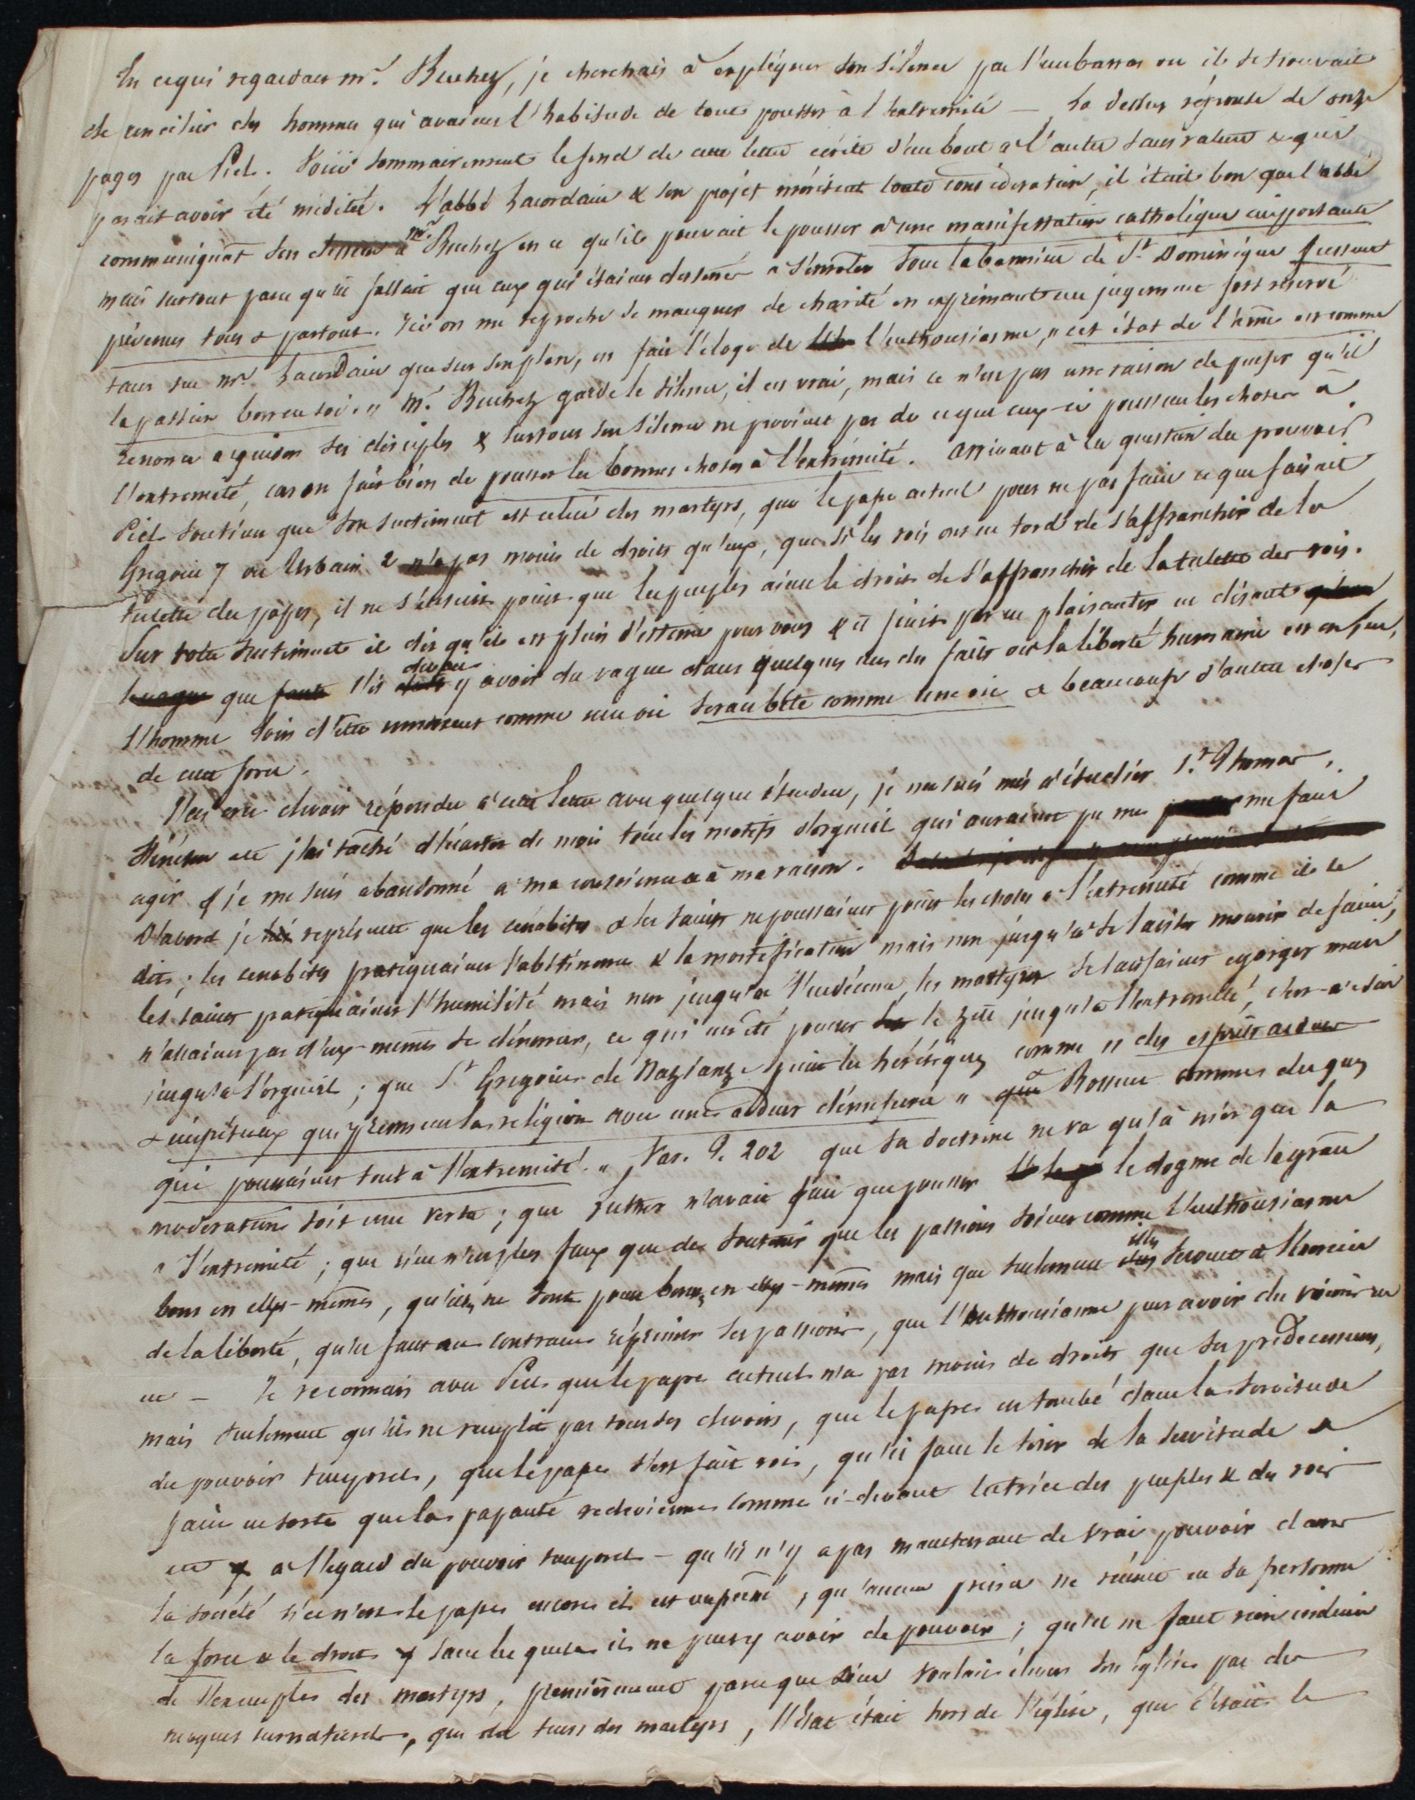 En ce qui regardait mr. Buchez, je cherchais à expliquer son silence par l'embarras ou il se trouvait
de concilier des hommes qui avaient l'habitude de tout pousser à l'extremité — La dessus réponse de onze
pages par Piel. Voici sommairement le fond de cette lettre écrite d'un bout à l'autre sans rature & qui
parait avoir été méditée. L'abbé Lacordaire & son projet méritent toute considération, il était bon que l'abbé
communiquat son dessein à mr. Buchez en ce qu'il pouvait le pousser à une manifestation catholique importante
mais surtout parce qu'il fallait que ceux qui étaient destinés à s'enroler sous la bannière de St Dominique fussent
prévenus tous & partout. Ici on me reproche de manquer de charité en exprimant un jugement fort réservé
tant sur mr. Lacordaire que sur son plan, on fait l'éloge de l'enthousiasme, " cet état de l'ame est comme
la passion bonne en soi. " Mr. Buchez garde le silence, il est vrai, mais ce n'est pas une raison de penser qu'il
renonce à guider ses disciples & surtout son silence ne provient pas de ce que ceux-ci poussent les choses à
l'extremité, car on fait bien de pousser les bonnes choses à l'extrémité. Arrivant à la question du pouvoir
Piel soutient que son sentiment est celui des martyrs, que le pape actuel pour ne pas faire ce que faisait
Grégoire 7 ou Urbain 2 n'a pas moins de droits qu'eux, que si les rois ont eu tord de s'affranchir de la
tutelle des papes, il ne s'ensuit point que les peuples aient le droit de s'affranchir de la tutelle des rois.
Sur votre sentiment il dit qu'il est plein d'estime pour vous & il finit par un plaisanter en disant
que s'il y avoir du vague dans quelques uns des faits ou la liberté humaine est en jeu,
l'homme loin d'être comme une oie serait bête comme une oie & beaucoup d'autres choses
de cette force.
J'ai cru devoir répondre à cette lettre avec quelque étendue, je me suis mis à étudier St. Thomas,
etc j'ai taché d'écarter de moi tous les motifs d'orgueil qui auraient pu me faire
agir & je me suis abandonné à ma conscience & à ma raison.
D'abord je représente que les cénobites & les saints ne poussaient point les choses à l'extremité comme il le
dit; les cénobites pratiquaient l'abstinence & la mortification mais non jusqu'à se laisser mourir de faim,
les saints pratiquaient l'humilité mais non jusqu'à l'indécence, les martyrs se laissaient égorger mais
n'allaient pas d'eux-mêmes se dénoncer, ce qui eut été pousser le zèle jusqu'à l'extremité, c'est-à-dire
jusqu'à l'orgueil; que St Grégoire de Nazianze peint les hérétiques comme " des esprits ardents
& impétueux qui prennent la religion avec une ardeur démesurée " que Bossuet comme des gens
qui poussaient tout à l'extremité. " Var. P. 202 que sa doctrine ne va qu'à nier que la
modération soit une vertu; que Luther n'avait fait que pousser le dogme de la grace
à l'extremité; que rien n'est plus faux que de soutenir que les passions soient comme l'enthousiasme
bons en elles-mêmes, qu'ils ne sont point bons en elles-mêmes mais que seulement elles servent à l'exercice
de la liberté, qu'il faut au contraire réprimer les passions, que l'enthousiasme peut avoir du
etc — Je reconnais avec Piel que le pape actuel n'a pas moins de droits que ses prédecesseurs,
mais seulement qu'il ne remplit pas tous ses devoirs, que le pape est tombé dans la servitude
du pouvoir temporel, que le pape s'est fait roi, qu'il faut le tirer de la servitude &
faire en sorte que la papauté redevienne comme ci-devant tutrice des peuples & des rois
etc & à l'égard du pouvoir temporel — qu'il n'y a pas maintenant de vrai pouvoir dans
la société si ce n'est le pape encore il est ; qu'aucun prince ne réunit en sa personne
la force & le droit & sans lesquels il ne peut y avoir de pouvoir; qu'il ne faut rien conclure
de l'exemple des martyrs, premièrement parce que Dieu voulait élever son église par des
moyens surnaturels, que du tems des martyrs, l'état était hors de l'église, que c'était le